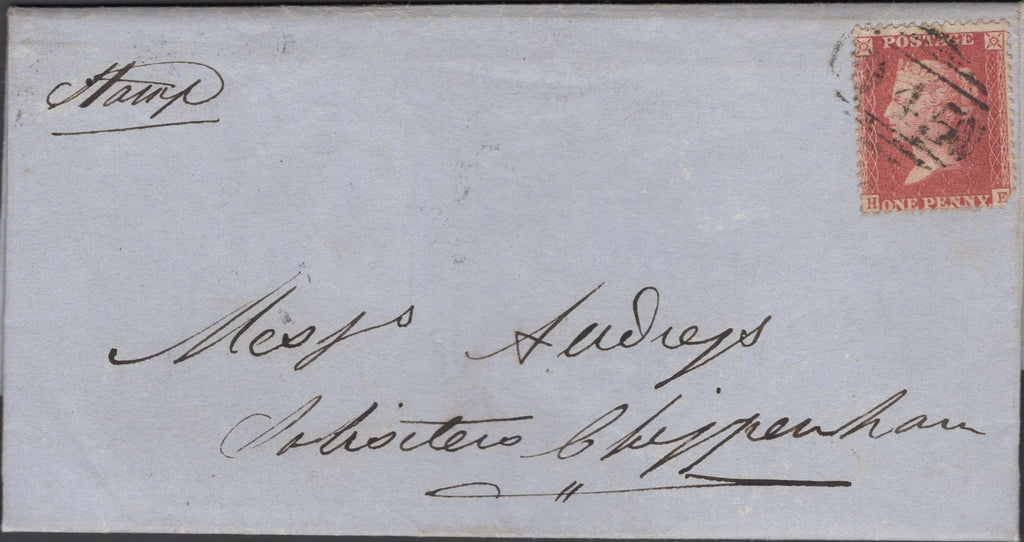 Stamp
POSTAGE
45
H ONE PENNY E
Messrs Audrys
Solicitors Chippenham